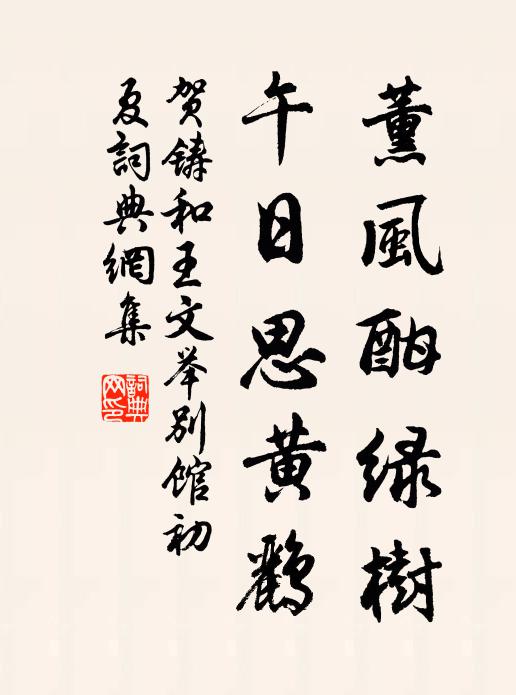 薰風酣綠樹
午日思黄鸝
贺鑄和王文举別馆初
夏詞典網集
詞典网印